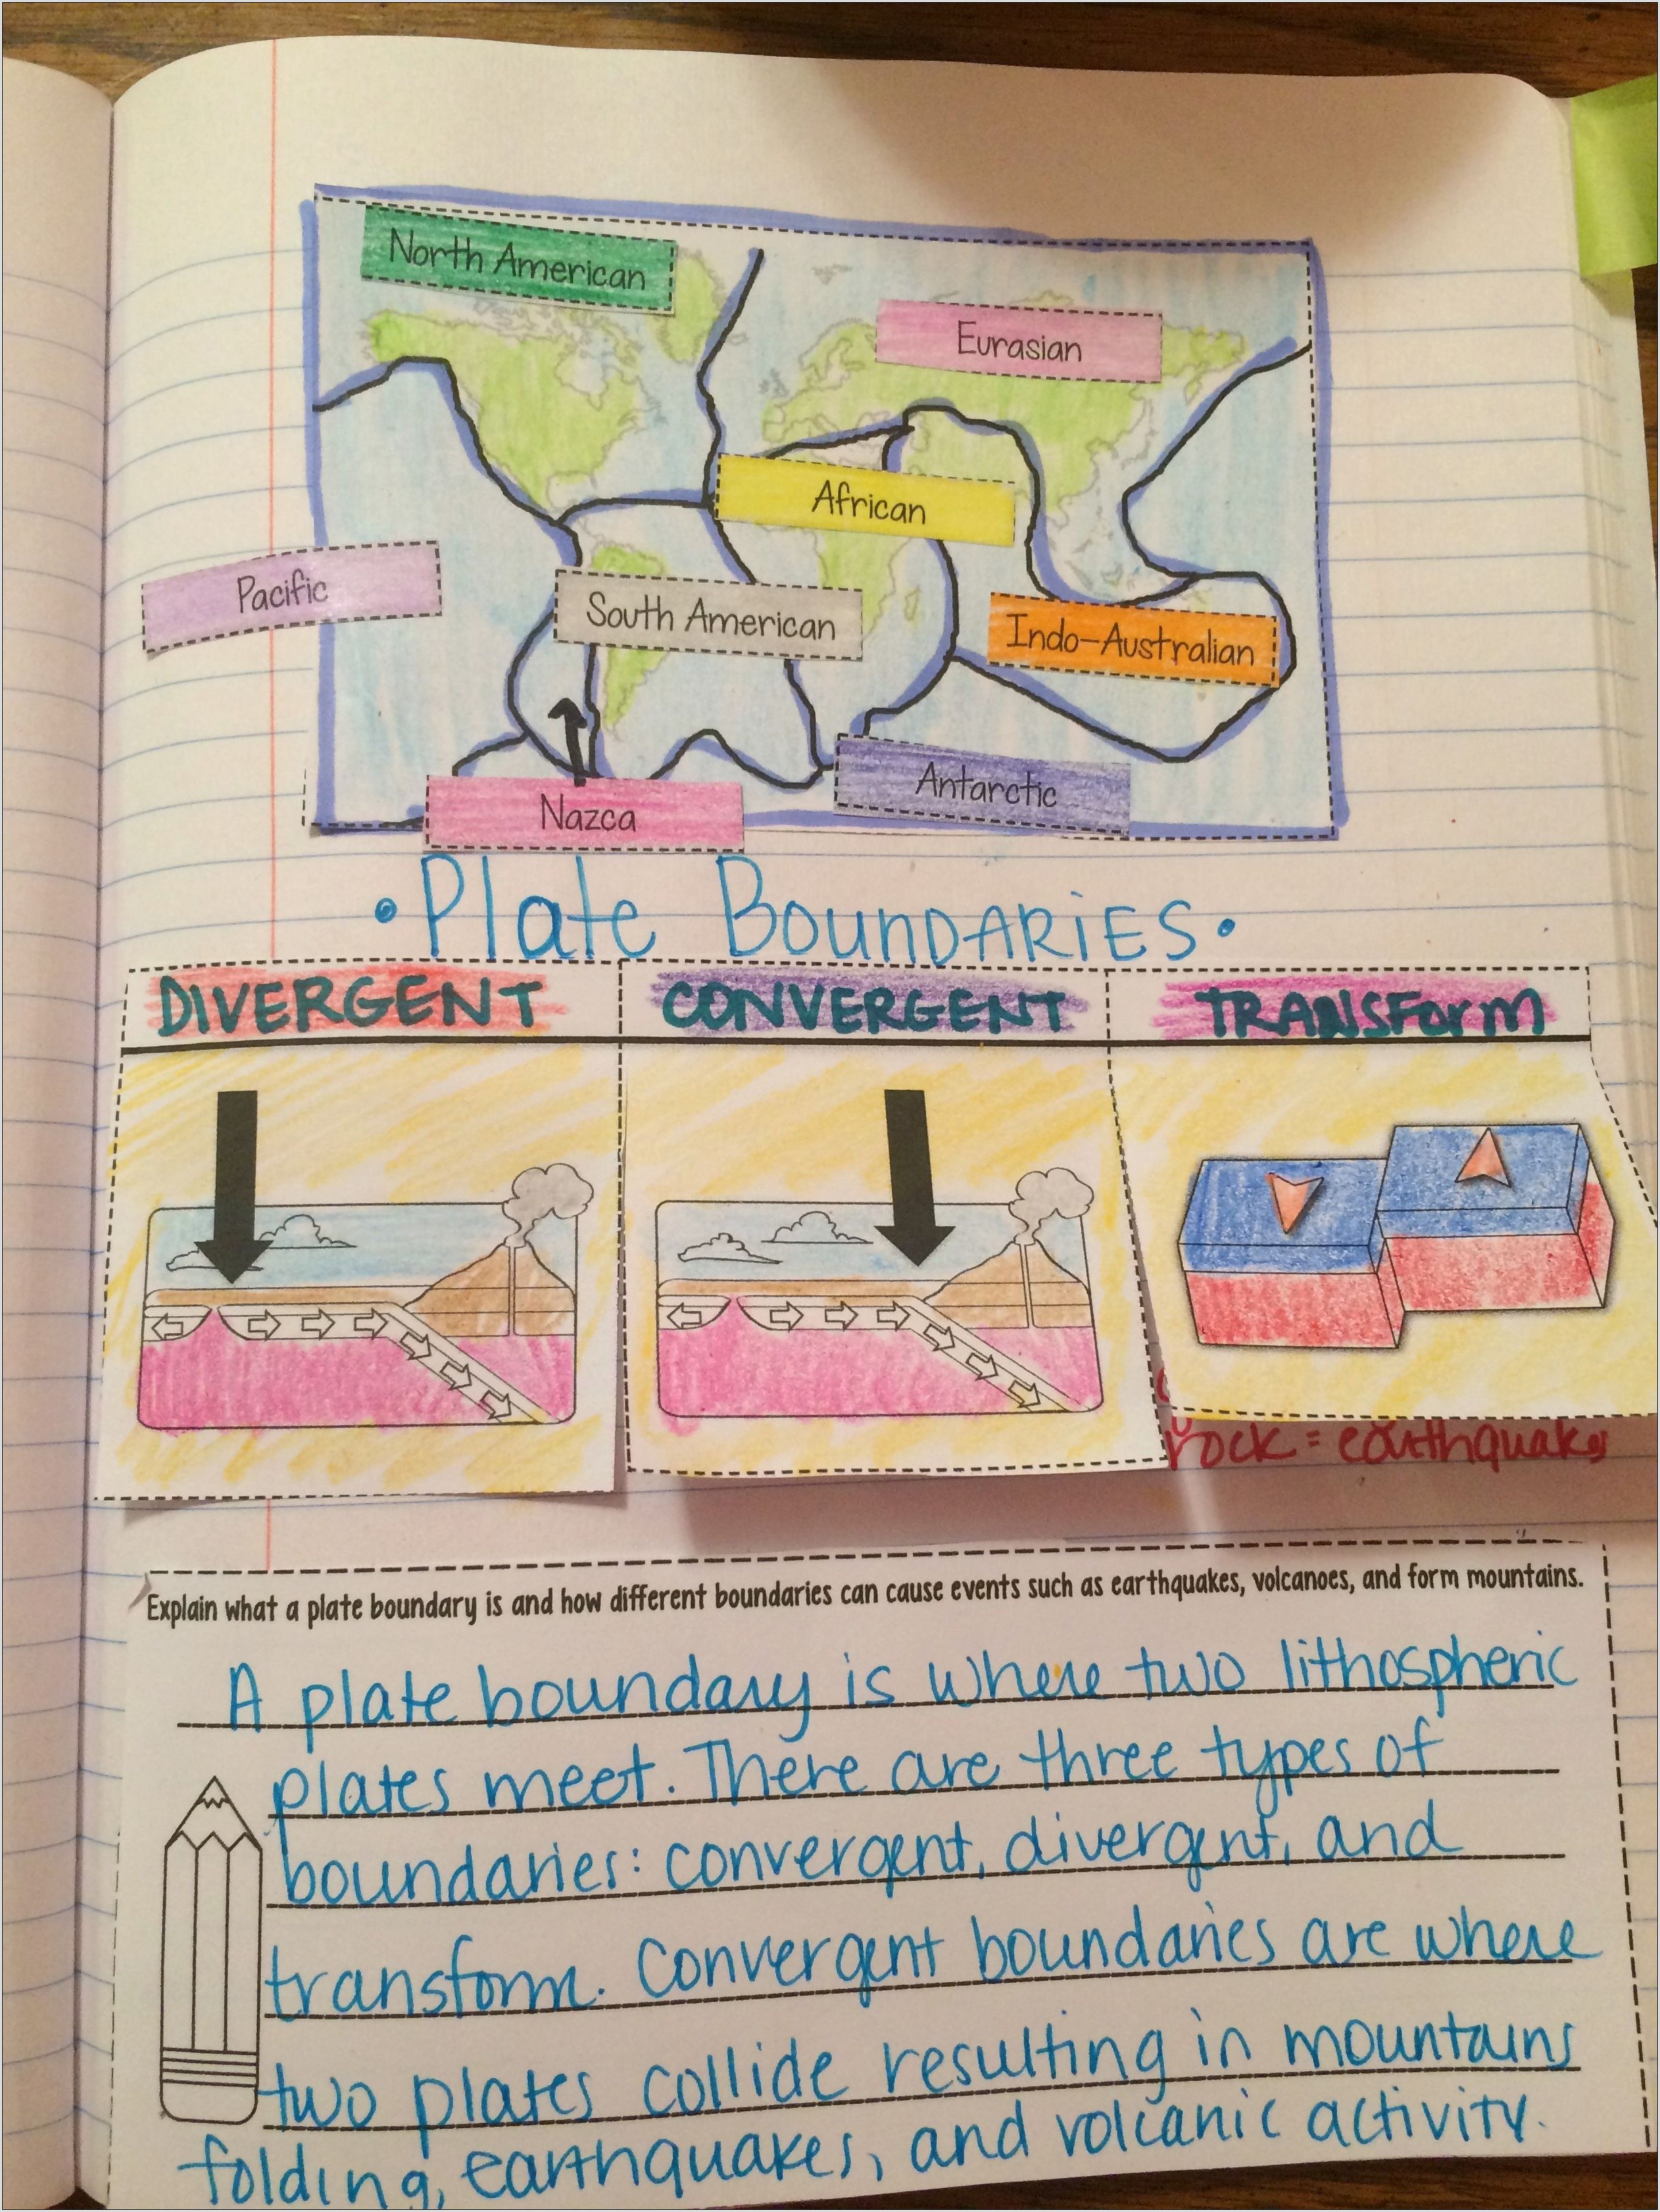 North American
Eurasian
African
Pacific
South American
Indo-Australian
Antarctic
Nazca
• Plate BounDARiES •
DIVERGENT
CONVERGENT
TRANSForm
rock = earthquakes
Explain what a plate boundary is and how different boundaries can cause events such as earthquakes, volcanoes, and form mountains.
A plate boundary is where two lithospheric
plates meet. There are three types of
boundaries: convergent, divergent, and
transform. Convergent boundaries are where
two plates collide resulting in mountains
folding, earthquakes, and volcanic activity.